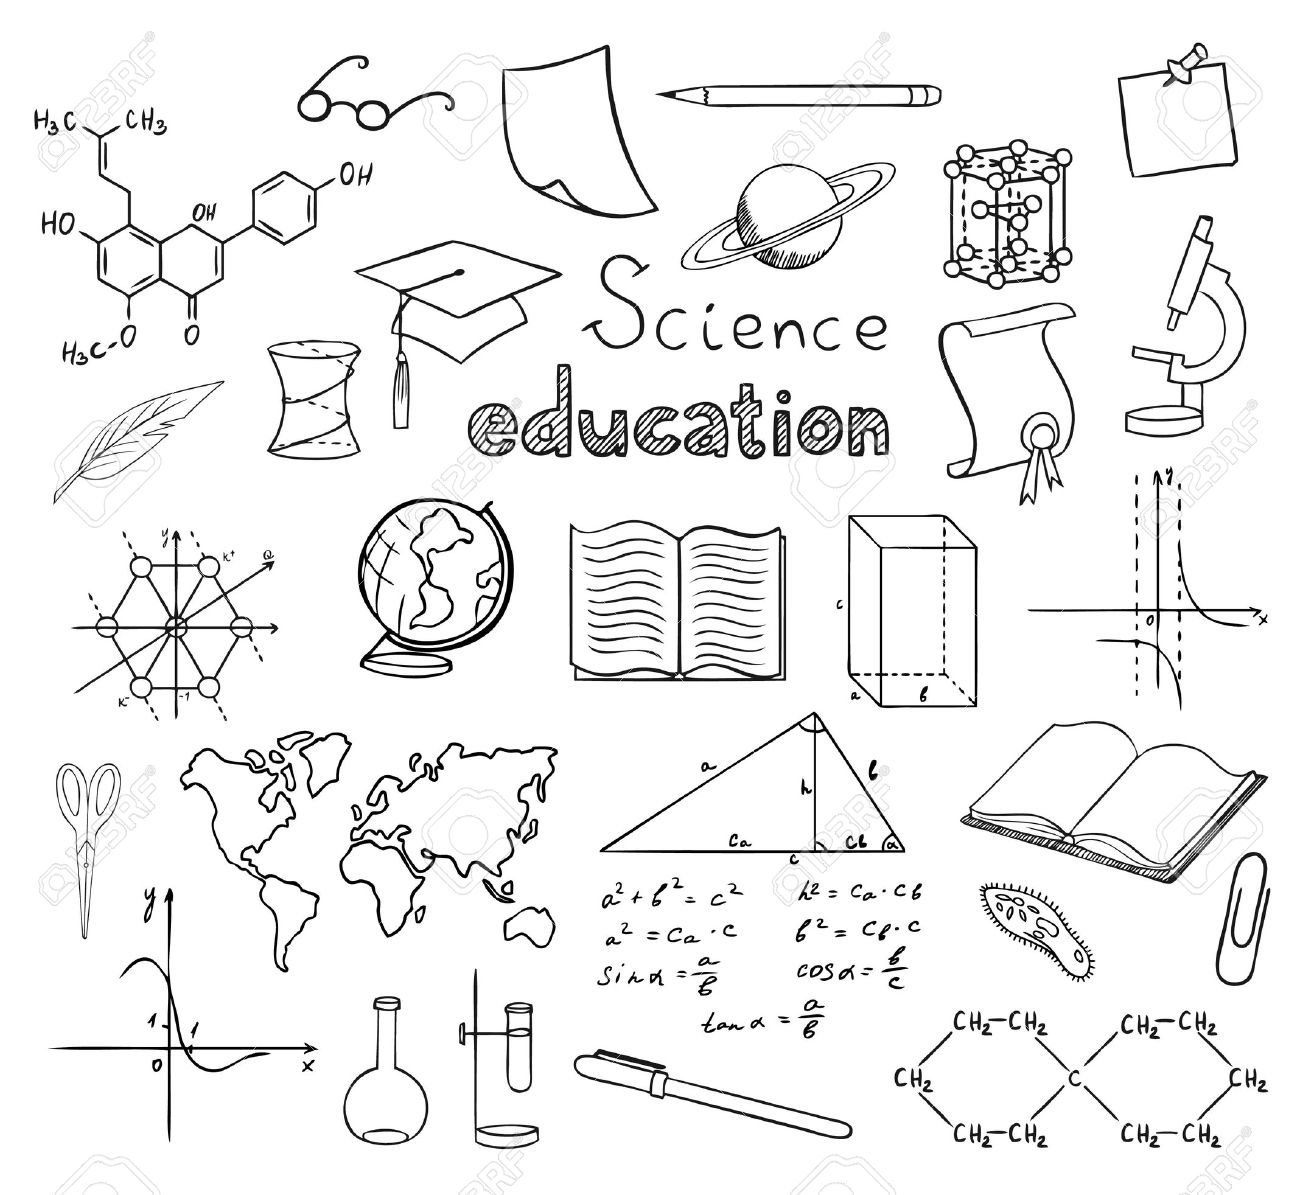 H₃C CH₃
OH
HO
OH
H₃C-O
O
Science
education
y
K⁺
Q
K⁻
-1
c
a
b
y
0
x
a
b
h
Ca
Cb
c
α
a² + b² = c²
h² = Ca · Cb
a² = Ca · C
b² = Cb · C
sin α = a/b
cos α = b/c
tan α = a/b
y
1
1
0
x
CH₂-CH₂ CH₂-CH₂
CH₂ C CH₂
CH₂-CH₂ CH₂-CH₂
123RF